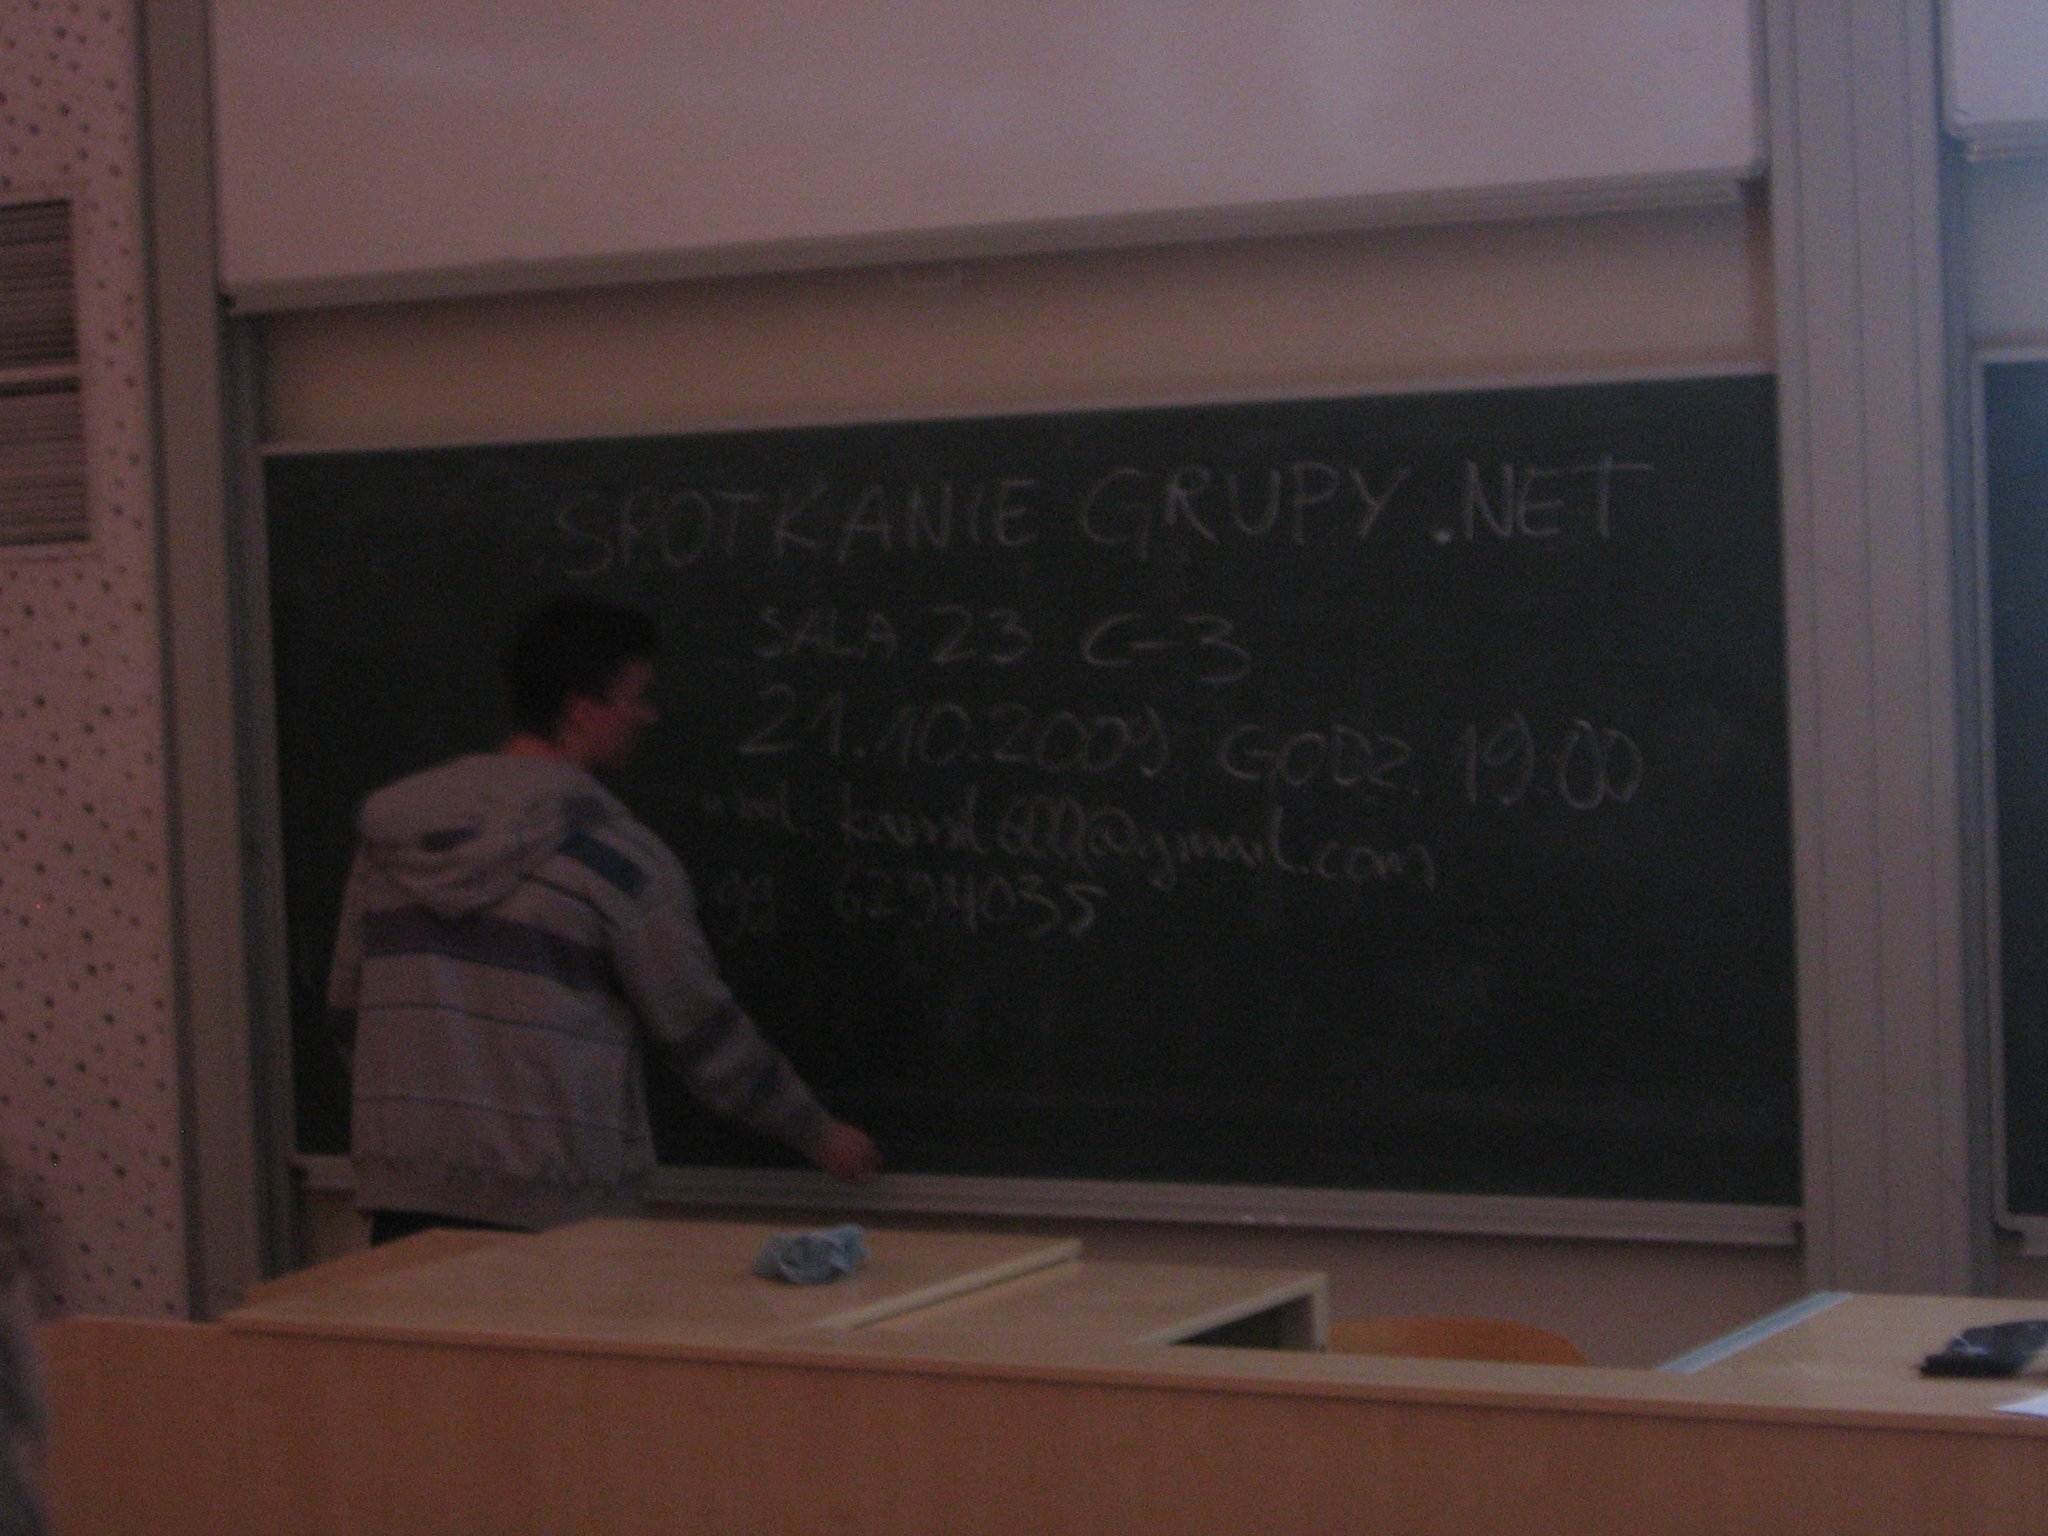 SPOTKANIE GRUPY .NET
SALA 23 C-3
21.10.2009 GODZ. 19:00
gg. 6294035